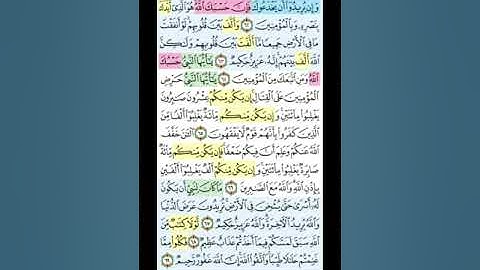 وَإِن يُرِيدُوٓاْ أَن يَخۡدَعُوكَ فَإِنَّ حَسۡبَكَ ٱللَّهُۚ هُوَ ٱلَّذِيٓ أَيَّدَكَ
بِنَصۡرِهِۦ وَبِٱلۡمُؤۡمِنِينَ ٦٢ وَأَلَّفَ بَيۡنَ قُلُوبِهِمۡۚ لَوۡ أَنفَقۡتَ
مَا فِي ٱلۡأَرۡضِ جَمِيعٗا مَّآ أَلَّفۡتَ بَيۡنَ قُلُوبِهِمۡ وَلَٰكِنَّ
ٱللَّهَ أَلَّفَ بَيۡنَهُمۡۚ إِنَّهُۥ عَزِيزٌ حَكِيمٞ ٦٣ يَٰٓأَيُّهَا ٱلنَّبِيُّ حَسۡبُكَ
ٱللَّهُ وَمَنِ ٱتَّبَعَكَ مِنَ ٱلۡمُؤۡمِنِينَ ٦٤ يَٰٓأَيُّهَا ٱلنَّبِيُّ حَرِّضِ
ٱلۡمُؤۡمِنِينَ عَلَى ٱلۡقِتَالِۚ إِن يَكُن مِّنكُمۡ عِشۡرُونَ صَٰبِرُونَ
يَغۡلِبُواْ مِاْئَتَيۡنِۚ وَإِن يَكُن مِّنكُم مِّاْئَةٞ يَغۡلِبُوٓاْ أَلۡفٗا مِّنَ
ٱلَّذِينَ كَفَرُواْ بِأَنَّهُمۡ قَوۡمٞ لَّا يَفۡقَهُونَ ٦٥ ٱلۡـَٰٔنَ خَفَّفَ
ٱللَّهُ عَنكُمۡ وَعَلِمَ أَنَّ فِيكُمۡ ضَعۡفٗاۚ فَإِن يَكُن مِّنكُم مِّاْئَةٞ
صَابِرَةٞ يَغۡلِبُواْ مِاْئَتَيۡنِۚ وَإِن يَكُن مِّنكُمۡ أَلۡفٞ يَغۡلِبُوٓاْ أَلۡفَيۡنِ
بِإِذۡنِ ٱللَّهِۗ وَٱللَّهُ مَعَ ٱلصَّٰبِرِينَ ٦٦ مَا كَانَ لِنَبِيٍّ أَن يَكُونَ
لَهُۥٓ أَسۡرَىٰ حَتَّىٰ يُثۡخِنَ فِي ٱلۡأَرۡضِۚ تُرِيدُونَ عَرَضَ ٱلدُّنۡيَا
وَٱللَّهُ يُرِيدُ ٱلۡأٓخِرَةَۗ وَٱللَّهُ عَزِيزٌ حَكِيمٞ ٦٧ لَّوۡلَا كِتَٰبٞ مِّنَ
ٱللَّهِ سَبَقَ لَمَسَّكُمۡ فِيمَآ أَخَذۡتُمۡ عَذَابٌ عَظِيمٞ ٦٨ فَكُلُواْ مِمَّا
غَنِمۡتُمۡ حَلَٰلٗا طَيِّبٗاۚ وَٱتَّقُواْ ٱللَّهَۚ إِنَّ ٱللَّهَ غَفُورٞ رَّحِيمٞ ٦٩